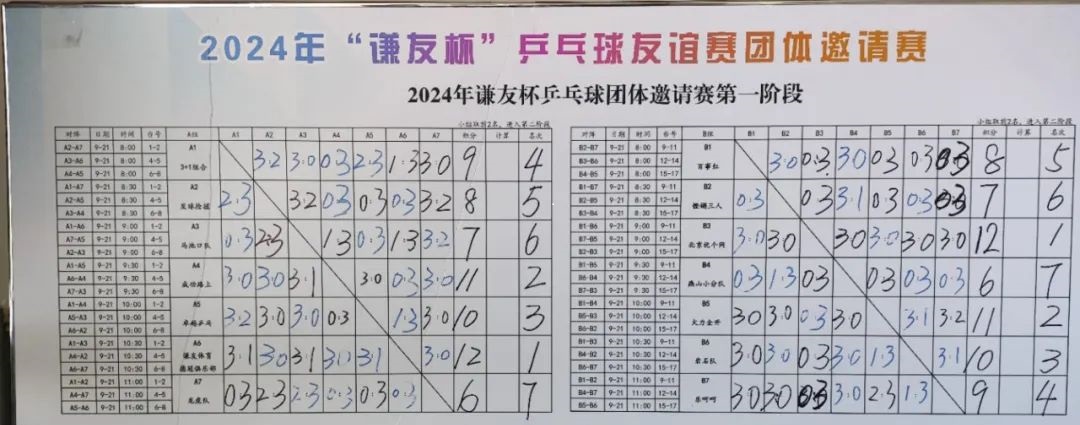 2024年“谦友杯”乒乓球友谊赛团体邀请赛
2024年谦友杯乒乓球团体邀请赛第一阶段
小组取前2名，进入第二阶段
对阵 日期 时间 台号 A组 A1 A2 A3 A4 A5 A6 A7 积分 计算 名次
A2-A7 9-21 8:00 1-2 A1
A3-A6 9-21 8:00 4-5 3+1组合 3:2 3:0 03 2:3 1:3 3:0 9 4
A4-A5 9-21 8:00 6-8
A1-A7 9-21 8:30 1-2 A2
A2-A5 9-21 8:30 4-5 2:3 3:2 03 0:3 0:3 3:2 8 5
A3-A4 9-21 8:30 6-8
A1-A6 9-21 9:00 1-2 A3
A7-A5 9-21 9:00 4-5 马池口队 0:3 2:3 1:3 0:3 1:3 3:2 7 6
A2-A3 9-21 9:00 6-8
A1-A5 9-21 9:30 1-2 A4
A6-A4 9-21 9:30 4-5 成功路上 3:0 3:0 3:1 3:0 0:3 3:0 11 2
A7-A3 9-21 9:30 6-8
A1-A4 9-21 10:00 1-2 A5
A5-A3 9-21 10:00 4-5 卓越乒乓 3:2 3:0 3:0 0:3 1:3 3:0 10 3
A6-A2 9-21 10:00 6-8
A1-A3 9-21 10:30 1-2 A6
A4-A2 9-21 10:30 4-5 谦友体育 3:1 3:0 3:1 3:0 3:1 3:0 12 1
A6-A7 9-21 10:30 6-8 德冠俱乐部
A1-A2 9-21 11:00 1-2 A7
A4-A7 9-21 11:00 4-5 龙虎队 03 2:3 2:3 0:3 0:3 0:3 6 7
A5-A6 9-21 11:00 6-8
小组取前2名，进入第二阶段
对阵 日期 时间 台号 B组 B1 B2 B3 B4 B5 B6 B7 积分 计算 名次
B2-B7 9-21 8:00 9-11 B1
B3-B6 9-21 8:00 12-14 百事红 3:0 0:3 3:0 03 03 03 8 5
B4-B5 9-21 8:00 15-17
B1-B7 9-21 8:30 9-11 B2
B2-B5 9-21 8:30 12-14 铿锵三人 0:3 03 3:1 03 0:3 03 7 6
B3-B4 9-21 8:30 15-17
B1-B6 9-21 9:00 9-11 B3
B7-B5 9-21 9:00 12-14 3:0 30 30 3:0 30 30 12 1
B2-B3 9-21 9:00 15-17
B1-B5 9-21 9:30 9-11 B4
B6-B4 9-21 9:30 12-14 燕山小分队 03 1:3 03 03 03 0:3 6 7
B7-B3 9-21 9:30 15-17
B1-B4 9-21 10:00 9-11 B5
B5-B3 9-21 10:00 12-14 火力全开 30 3:0 0:3 30 3:1 3:2 11 2
B6-B2 9-21 10:00 15-17
B1-B3 9-21 10:30 9-11 B6
B4-B2 9-21 10:30 12-14 岩石队 3:0 3:0 03 3:0 1:3 3:1 10 3
B6-B7 9-21 10:30 15-17
B1-B2 9-21 11:00 9-11 B7
B4-B7 9-21 11:00 12-14 乐呵呵 30 3:0 03 3:0 2:3 1:3 9 4
B5-B6 9-21 11:00 15-17